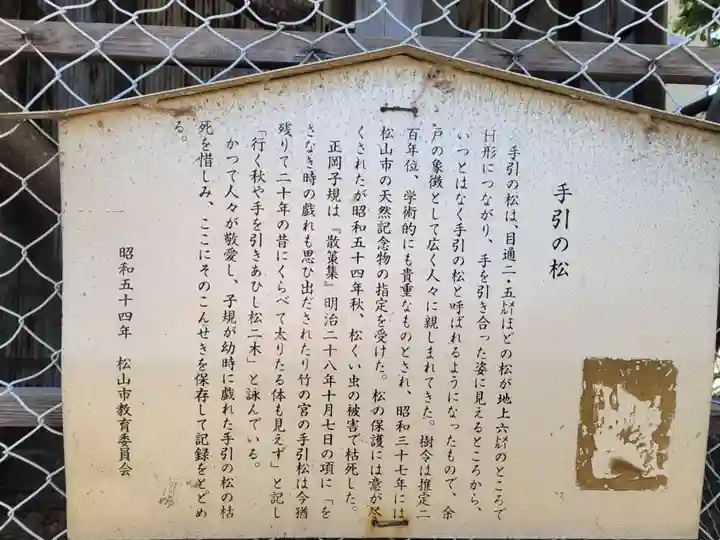 手引の松
手引の松は、目通二・五㍍ほどの松が地上六㍍のところで
H形につながり、手を引き合った姿に見えるところから、
いつとはなく手引の松と呼ばれるようになったもので、余
戸の象徴として広く人々に親しまれてきた。樹令は推定二
百年位、学術的にも貴重なものとされ、昭和三十七年には
松山市の天然記念物の指定を受けた。松の保護には意が尽
くされたが昭和五十四年秋、松くい虫の被害で枯死した。
正岡子規は『散策集』明治二十八年十月七日の項に「を
さなき時の戯れも思ひ出だされたり竹の宮の手引松は今猶
残りて二十年の昔にくらべて太りたる体も見えず」と記し
「行く秋や手を引きあひし松二木」と詠んでいる。
かつて人々が敬愛し、子規が幼時に戯れた手引の松の枯
死を惜しみ、ここにそのこんせきを保存して記録をとどめ
る。
昭和五十四年 松山市教育委員会